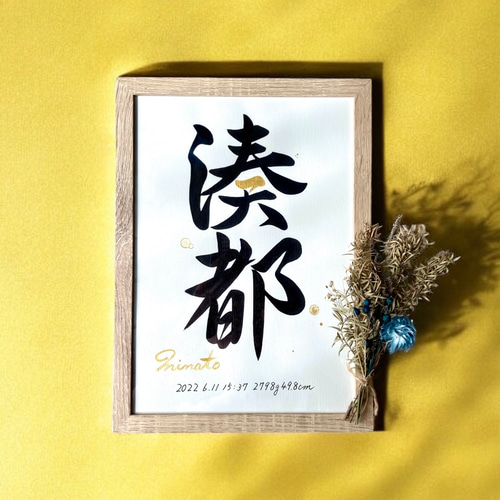 湊都
Minato
2022 6.11 15:37 2798g 49.8cm